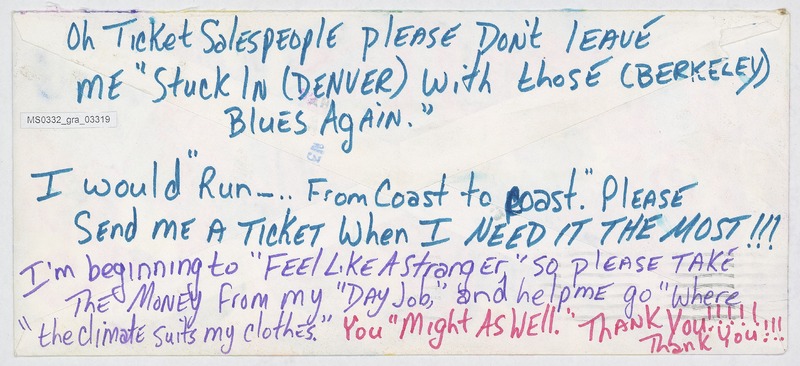 Oh Ticket Salespeople please Don't leave
me "Stuck In (DENVER) with those (BERKELEY)
Blues Again."
MS0332_gra_03319
I would "Run–.. From Coast to coast." Please
Send me A Ticket When I NEED IT THE MOST!!!
I'm beginning to "FEEL LIKE A Stranger," so please TAKE
The Money from my "Day Job," and help me go "Where
"the climate suits my clothes." You "Might As Well." Thank You!!!!!
Thank You!!!